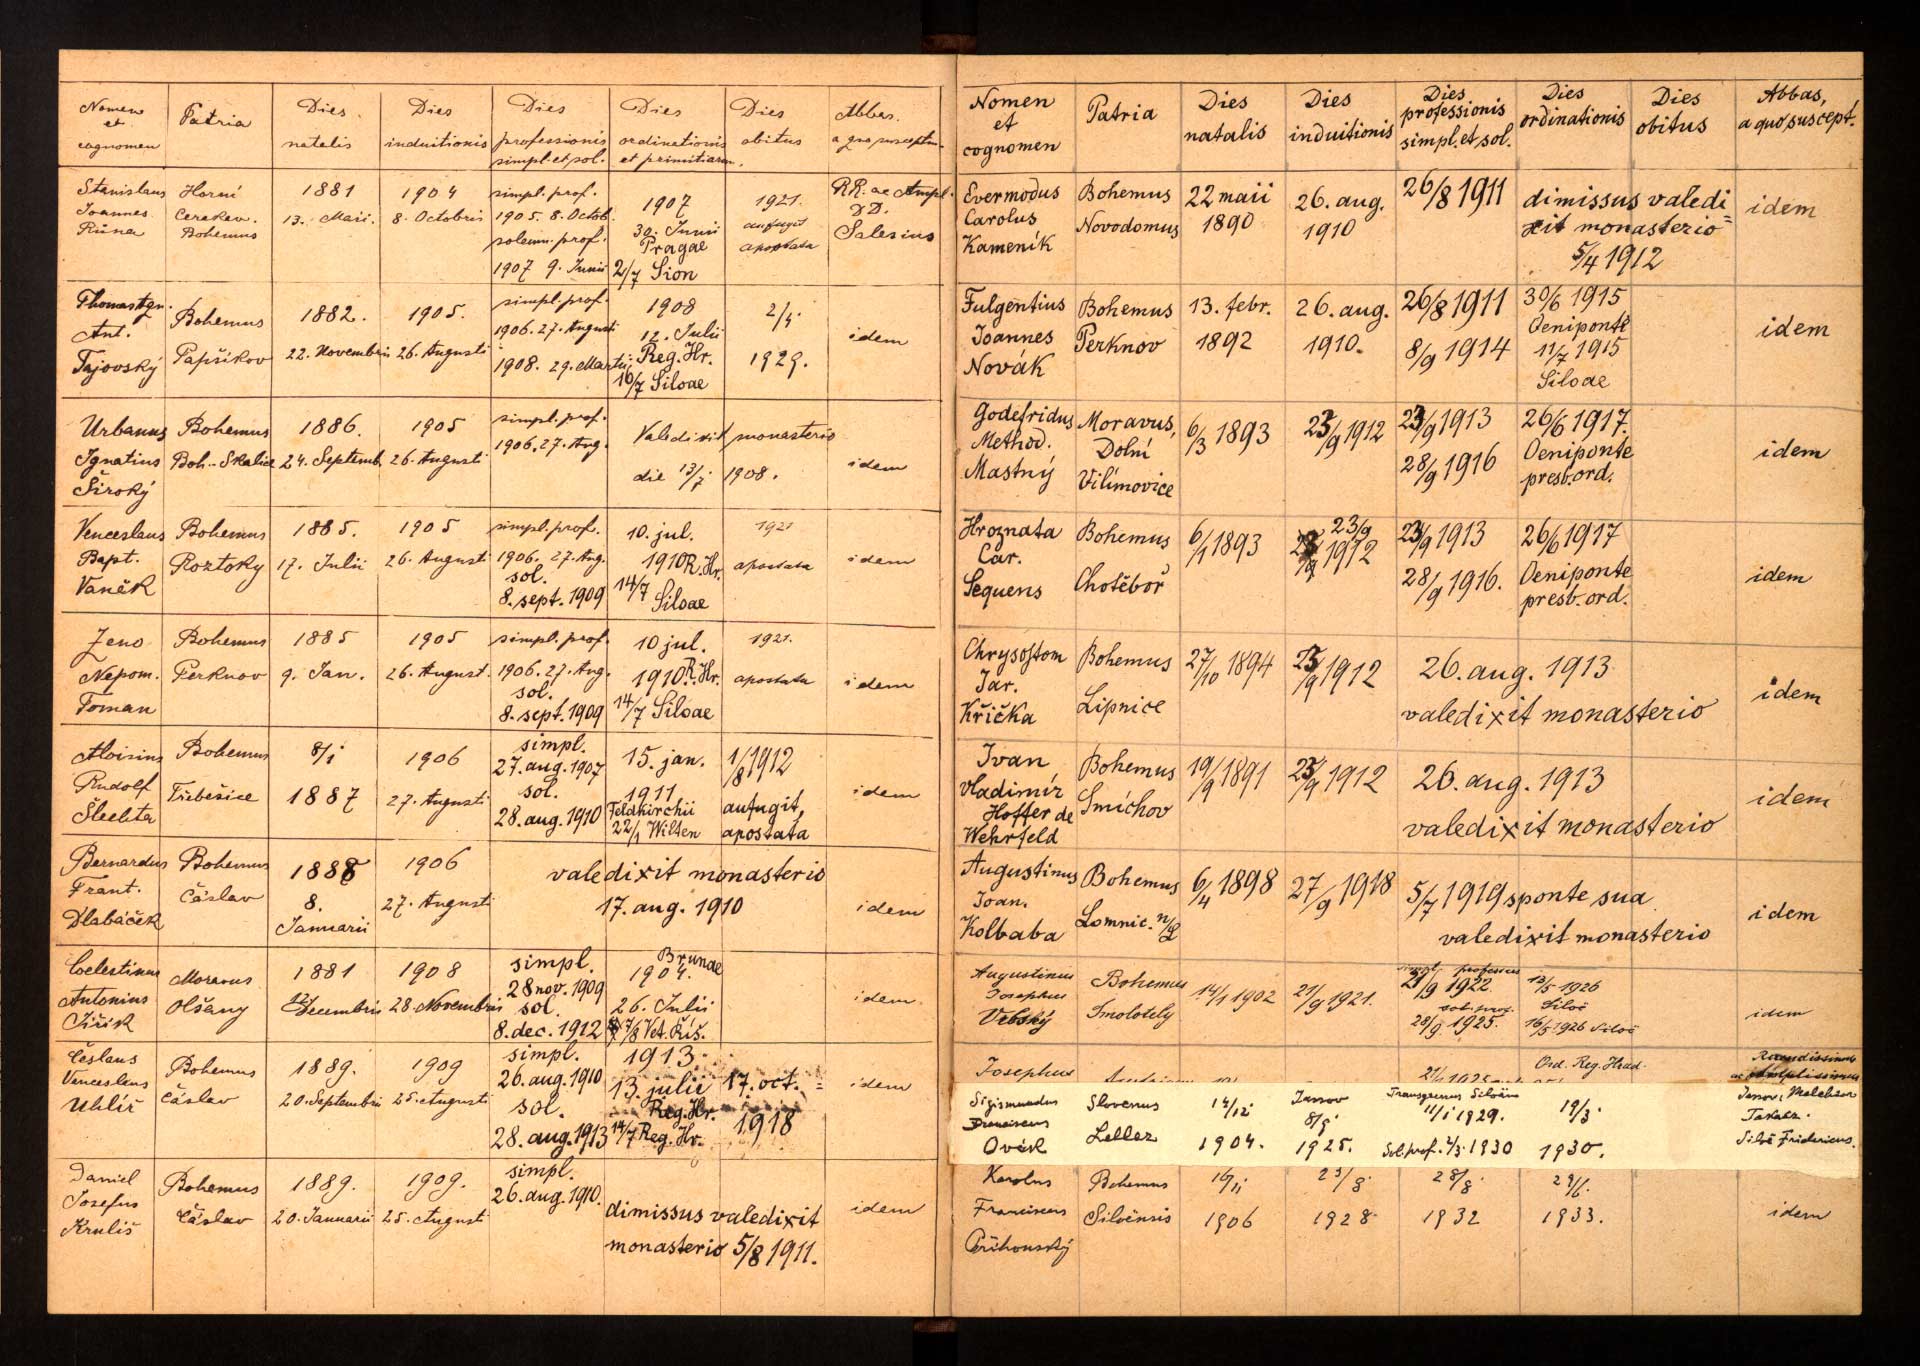 Nomen et cognomen | Patria | Dies natalis | Dies induitionis | Dies professionis simpl. et sol. | Dies ordinationis et primitiarum. | Dies obitus | Abbas. a quo susceptus
Stanislaus Joannes Růna | Horní Cerekev. Bohemus | 1881 13. Maii. | 1904 8. Octobris | simpl. prof. 1905. 8. Octob. solemn. prof. 1907 9. Junii | 1907 30. Junii Pragae 2/7 Sion | 1921. aufugit apostata | RR. ac Ampl. DD. Salesius
Ant. Tajovský | Bohemus Papšíkov | 1882. 22. Novembris | 1905. 26. Augusti | simpl. prof. 1906. 27. Augusti 1908. 29. Martii | 1908 12. Julii Reg. Hr. 16/7 Siloae | 2/4. 1929. | idem
Urbanus Ignatius Široký | Bohemus Boh.-Skalice | 1886. 24. Septemb. | 1905 26. Augusti | simpl. prof. 1906. 27. Aug. | Valedixit monasterio die 13/7 1908. | idem
Venceslaus Bapt. Vaněk | Bohemus Roztoky | 1885. 17. Julii | 1905 26. Augusti | simpl. prof. 1906. 27. Aug. sol. 8. sept. 1909 | 10. jul. 1910 R. Hr. 14/7 Siloae | 1921 apostata | idem
Zeno Nepom. Toman | Bohemus Perknov | 1885 9. Jan. | 1905 26. August. | simpl. prof. 1906. 27. Aug. sol. 8. sept. 1909 | 10 jul. 1910 R. Hr. 14/7 Siloae | 1921. apostata | idem
Aloisius Rudolf | Bohemus Třebešice | 8/1 1887 | 1906 27. Augusti | simpl. 27. aug. 1907 sol. 28. aug. 1910 | 15. jan. 1911 Feldkirchii 22/1 Wilten | 1/8 1912 aufugit, apostata | idem
Bernardus Frant. Dlabáček | Bohemus Čáslav | 1888 8. Januarii | 1906 27. Augusti | valedixit monasterio 17. aug. 1910 | idem
Coelestinus Antonius Jiřík | Moravus Olšany | 1881 Decembris | 1908 28. Novembris | simpl. 28 nov. 1909 sol. 8. dec. 1912 | Brunae 1904. 26. Julii 7/8 Vet. Říš. | idem
Česlaus Venceslaus Uhlíř | Bohemus Čáslav | 1889. 20. Septembris | 1909 25. Augusti | simpl. 26. aug. 1910 sol. 28. aug. 1913 | 1913. 13. julii Reg. Hr. 14/7 Reg. Hr. | 17. oct. 1918 | idem
Daniel Josefus Kruliš | Bohemus Čáslav | 1889. 20. Januarii | 1909. 25. Augusti | simpl. 26. aug. 1910. | dimissus valedixit monasterio 5/8 1911. | idem
Nomen et cognomen | Patria | Dies natalis | Dies induitionis | Dies professionis simpl. et sol. | Dies ordinationis | Dies obitus | Abbas, a quo suscept.
Evermodus Carolus Kameník | Bohemus Novodomus | 22 maii 1890 | 26. aug. 1910 | 26/8 1911 | dimissus valedixit monasterio 5/4 1912 | idem
Fulgentius Joannes Novák | Bohemus Perknov | 13. febr. 1892 | 26. aug. 1910. | 26/8 1911 8/9 1914 | 30/6 1915 Oeniponte 11/7 1915 Siloae | idem
Godefridus Method. Mastný | Moravus, Dolní Vilímovice | 6/3 1893 | 23/9 1912 | 23/9 1913 28/9 1916 | 26/6 1917. Oeniponte presb. ord. | idem
Hroznata Car. Sequens | Bohemus Chotěboř | 6/1 1893 | 23/9 1912 | 23/9 1913 28/9 1916. | 26/6 1917 Oeniponte presb. ord. | idem
Chrysostom Jar. Křička | Bohemus Lipnice | 27/10 1894 | 23/9 1912 | 26. aug. 1913 valedixit monasterio | idem
Ivan Vladimír Hoffer de Wehrfeld | Bohemus Smíchov | 19/9 1891 | 23/9 1912 | 26. aug. 1913 valedixit monasterio | idem
Augustinus Joan. Kolbaba | Bohemus Lomnic. n/L | 6/4 1898 | 27/9 1918 | 5/7 1919 sponte sua valedixit monasterio | idem
Augustinus Josephus Vrbský | Bohemus Smolotely | 14/1 1902 | 21/9 1921. | simpl. professus 21/9 1922. sol. prof. 28/9. 1925. | 13/5 1926 Siloë 16/5 1926 Siloë | idem
Josephus | Ord. Reg. Hrad.
Sigismundus Franciscus Ovák | Slovenus | 14/12 1904. | Jasov 8/9 1925. | Transgressus Siloëm 11/1 1929. Sol. prof. 2/3. 1930 | 19/3. 1930. | Jasov, Melchior Takács. Siloë Fridericus.
Karolus Franciscus Peřhonský | Bohemus Siloënsis | 16/11 1906 | 23/8. 1928 | 28/8. 1932 | 29/6. 1933. | idem